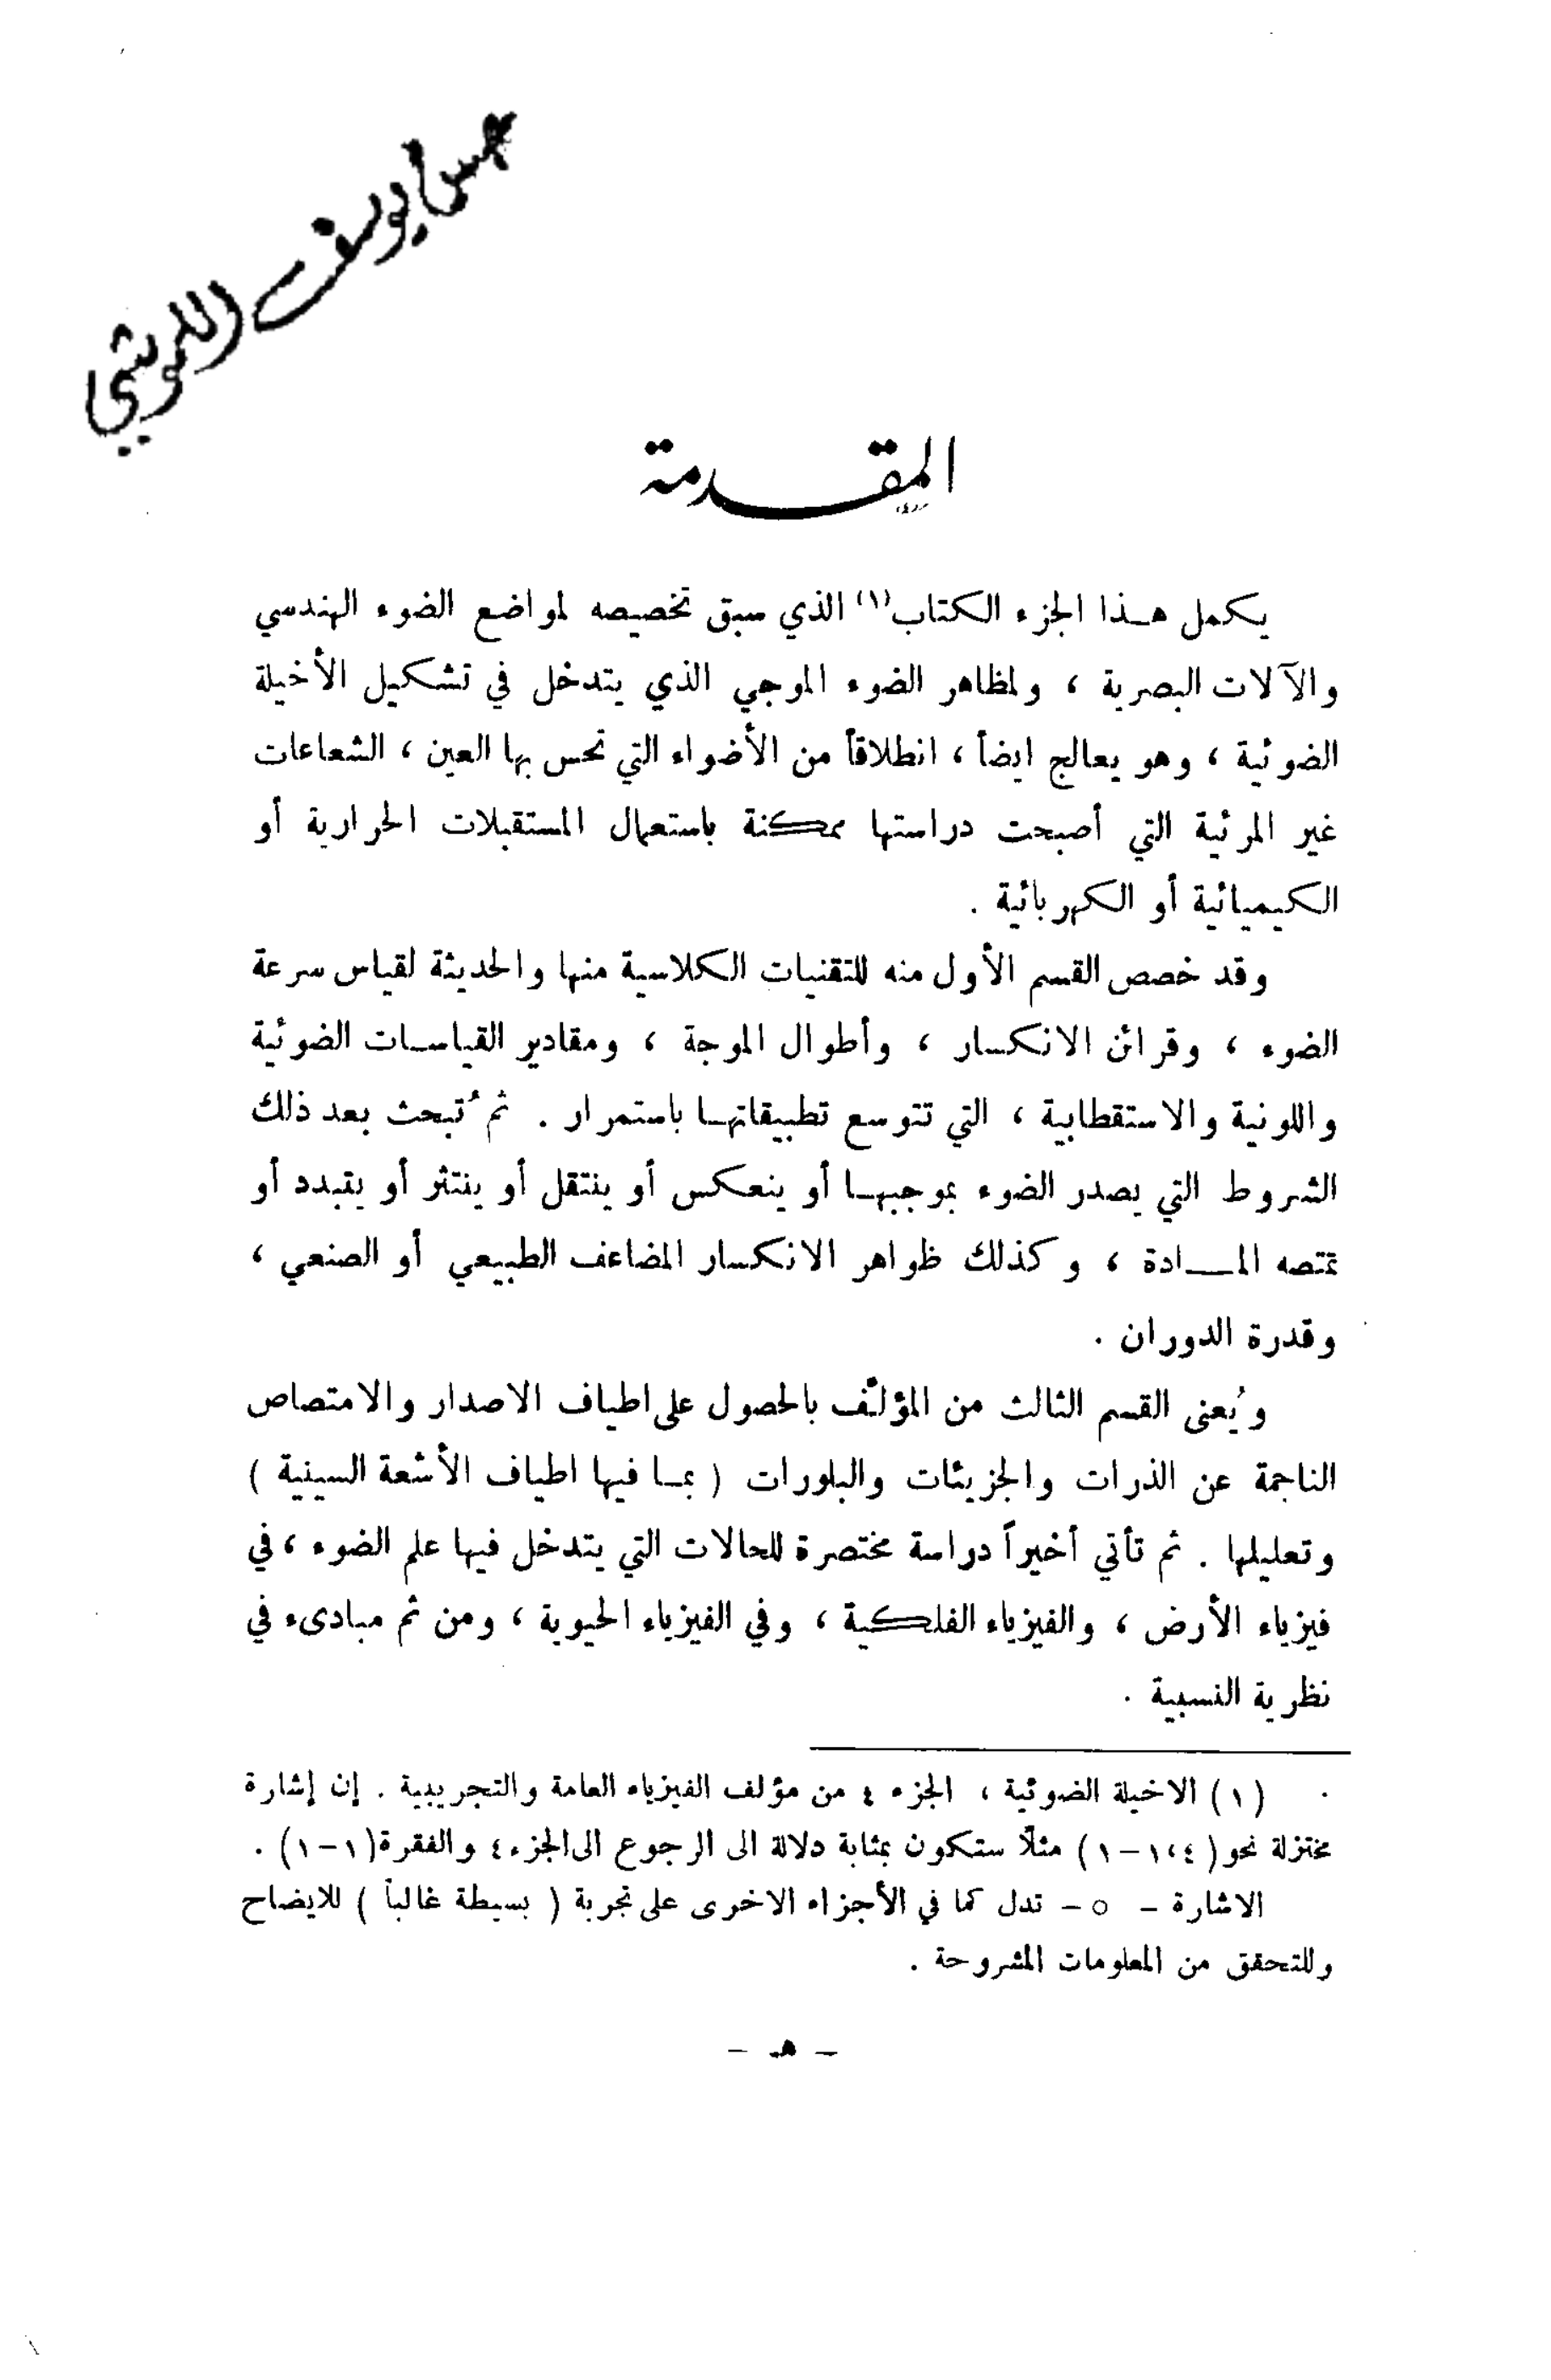 يوسف
المقدمة
يكمل هذا الجزء الكتاب(١) الذي سبق تخصيصه لمواضع الضوء الهندسي
والآلات البصرية ، ولمظاهر الضوء الموجي الذي يتدخل في تشكيل الأخيلة
الضوئية ، وهو يعالج ايضاً ، انطلاقاً من الأضواء التي تحس بها العين ، الشعاعات
غير المرئية التي أصبحت دراستها ممكنة باستعمال المستقبلات الحرارية أو
الكيميائية أو الكهربائية .
وقد خصص القسم الأول منه للتقنيات الكلاسية منها والحديثة لقياس سرعة
الضوء ، وقرائن الانكسار ، وأطوال الموجة ، ومقادير القياسات الضوئية
واللونية والاستقطابية ، التي تتوسع تطبيقاتها باستمرار . ثم تُبحث بعد ذلك
الشروط التي يصدر الضوء بموجبها أو ينعكس أو ينتقل أو ينتثر أو يتبدد أو
تمتصه المادة ، وكذلك ظواهر الانكسار المضاعف الطبيعي أو الصنعي ،
وقدرة الدوران .
ويُعنى القسم الثالث من المؤلَّف بالحصول على اطياف الاصدار والامتصاص
الناجمة عن الذرات والجزيئات والبلورات ( بما فيها اطياف الأشعة السينية )
وتعليلها . ثم تأتي أخيراً دراسة مختصرة للحالات التي يتدخل فيها علم الضوء ، في
فيزياء الأرض ، والفيزياء الفلكية ، وفي الفيزياء الحيوية ، ومن ثم مبادىء في
نظرية النسبية .
(١) الاخيلة الضوئية ، الجزء ٤ من مؤلف الفيزياء العامة والتجريبية . إن إشارة
مختزلة نحو (٤،١-١) مثلًا ستكون بمثابة دلالة الى الرجوع الى الجزء ٤ والفقرة (١-١) .
الاشارة - ○ - تدل كما في الأجزاء الاخرى على تجربة ( بسيطة غالباً ) للايضاح
وللتحقق من المعلومات المشروحة .
- هـ -